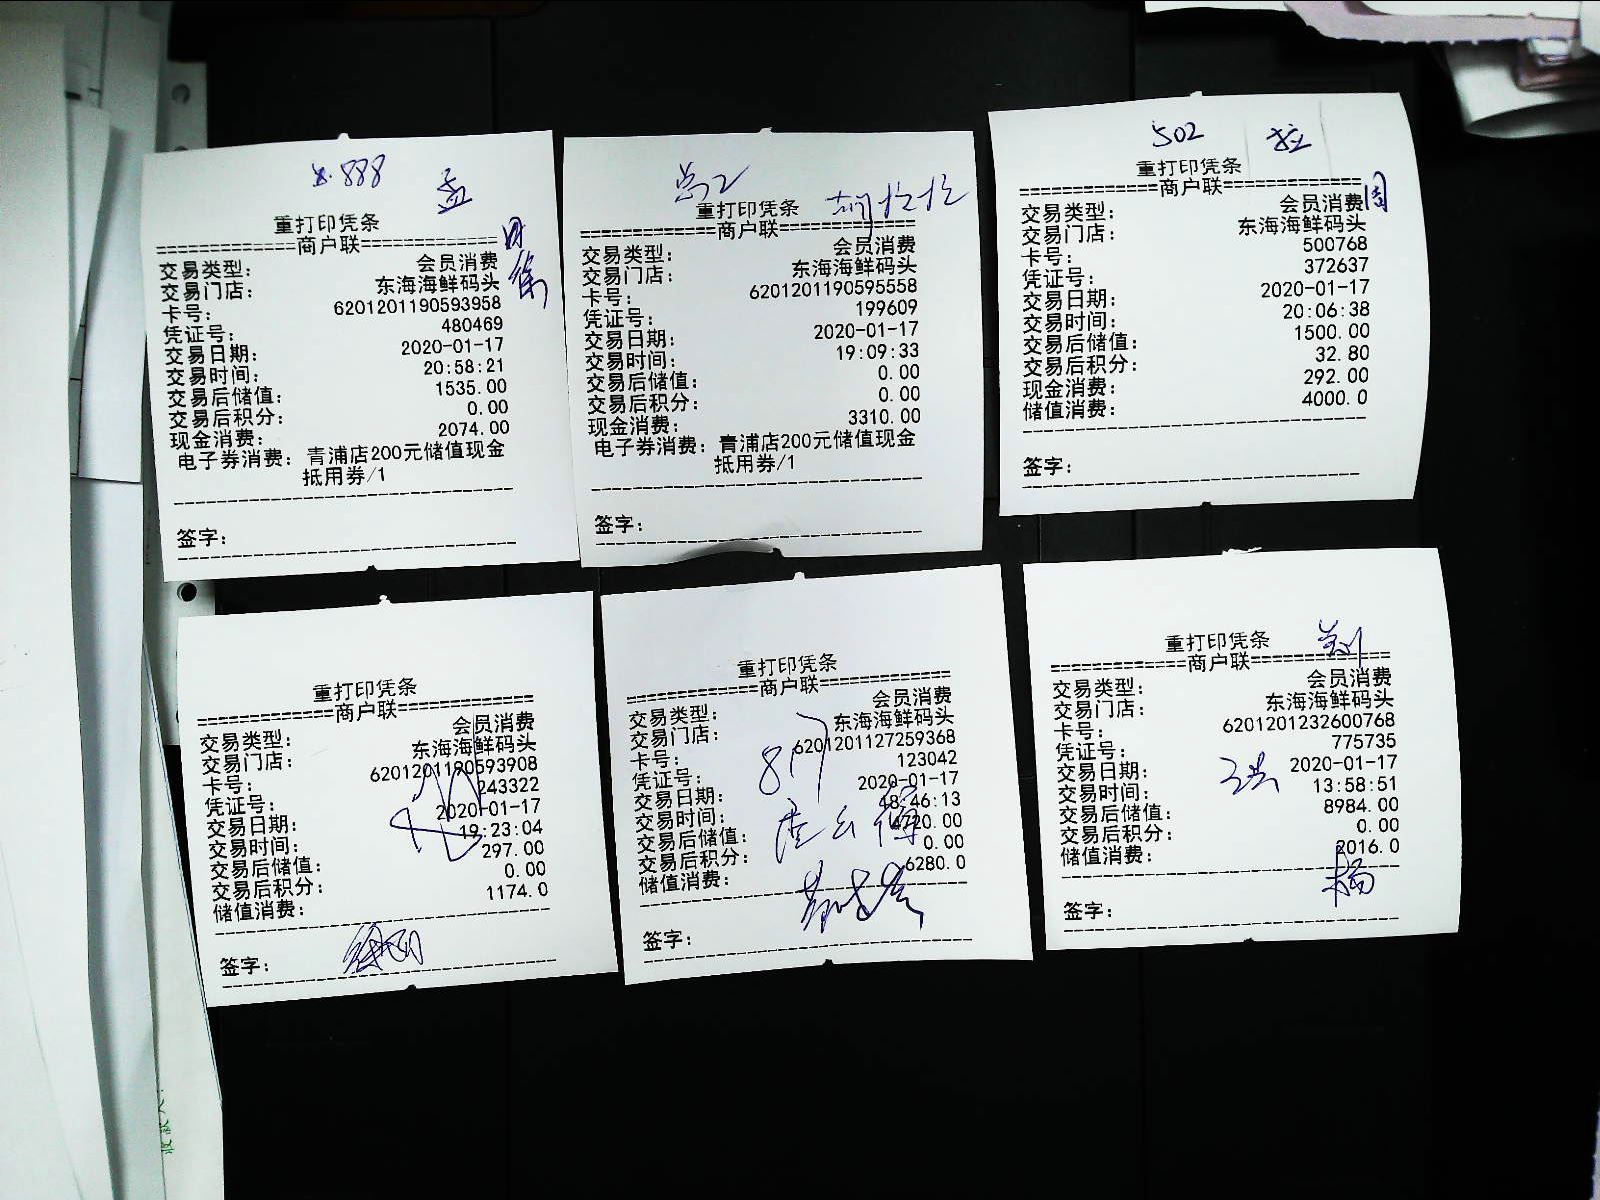 888
孟
重打印凭条
==============商户联==============
交易类型： 会员消费
交易门店： 东海海鲜码头
卡号： 6201201190593958
凭证号： 480469
交易日期： 2020-01-17
交易时间： 20:58:21
交易后储值： 1535.00
交易后积分： 0.00
现金消费： 2074.00
电子券消费：青浦店200元储值现金
抵用券/1
签字：
重打印凭条
==============商户联==============
交易类型： 会员消费
交易门店： 东海海鲜码头
卡号： 6201201190595558
凭证号： 199609
交易日期： 2020-01-17
交易时间： 19:09:33
交易后储值： 0.00
交易后积分： 0.00
现金消费： 3310.00
电子券消费：青浦店200元储值现金
抵用券/1
签字：
502
重打印凭条
==============商户联==============
交易类型： 会员消费
周
交易门店： 东海海鲜码头
卡号： 500768
凭证号： 372637
交易日期： 2020-01-17
交易时间： 20:06:38
交易后储值： 1500.00
交易后积分： 32.80
现金消费： 292.00
储值消费： 4000.0
签字：
重打印凭条
==============商户联==============
交易类型： 会员消费
交易门店： 东海海鲜码头
卡号： 6201201190593908
凭证号： 243322
交易日期： 2020-01-17
交易时间： 19:23:04
交易后储值： 297.00
交易后积分： 0.00
储值消费： 1174.0
签字：
重打印凭条
==============商户联==============
交易类型： 会员消费
交易门店： 东海海鲜码头
卡号： 6201201127259368
凭证号： 123042
交易日期： 2020-01-17
交易时间： 18:46:13
交易后储值： 4720.00
交易后积分： 0.00
储值消费： 6280.0
签字：
重打印凭条
==============商户联==============
交易类型： 会员消费
交易门店： 东海海鲜码头
卡号： 6201201232600768
凭证号： 775735
交易日期： 2020-01-17
交易时间： 13:58:51
交易后储值： 8984.00
交易后积分： 0.00
储值消费： 2016.0
杨
签字：